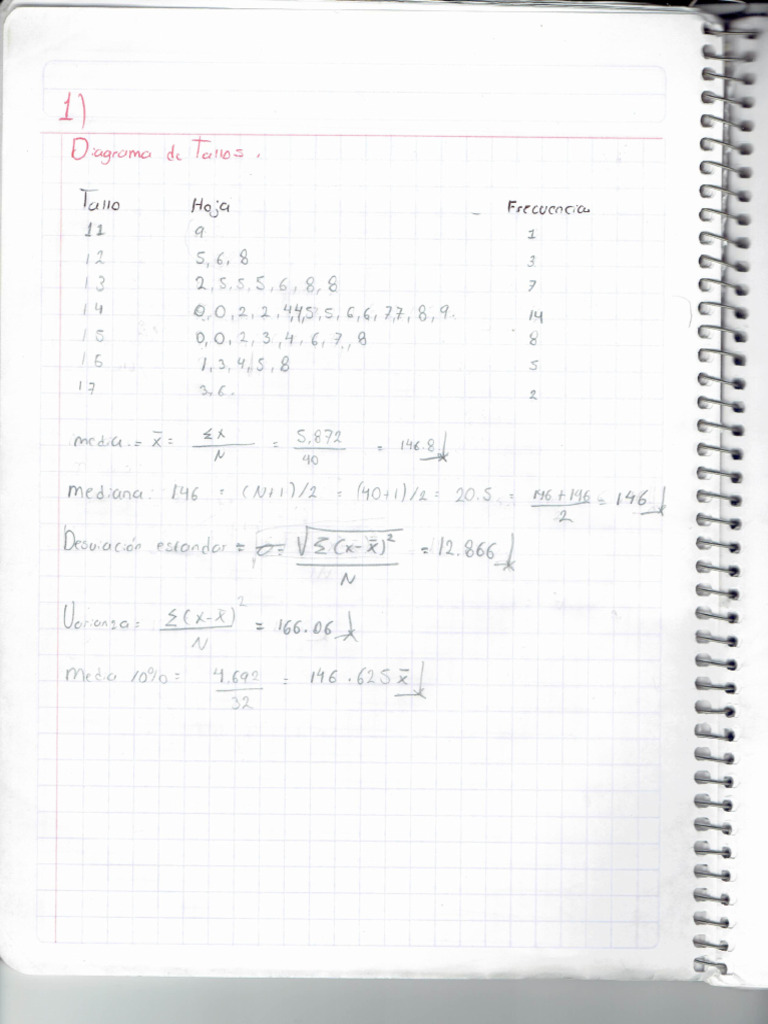 1)
Diagrama de Tallos.
Tallo Hoja - Frecuencia
11 9 1
12 5, 6, 8 3
13 2, 5, 5, 5, 6, 8, 8 7
14 0, 0, 2, 2, 4,4,5, 5, 6, 6, 7,7, 8, 9. 14
15 0, 0, 2, 3, 4, 6, 7, 8 8
16 1, 3, 4, 5, 8 5
17 3, 6. 2
media. = x̄ = Σx / N = 5,872 / 40 = 146.8
mediana: 146 = (N+1)/2 = (40+1)/2 = 20.5 = 146+146 / 2 = 146
Desviación estandar = σ = √Σ(x-x̄)² / N = 12.866
Varianza = Σ(x-x̄)² / N = 166.06
Media 10% = 4.692 / 32 = 146.625 x̄